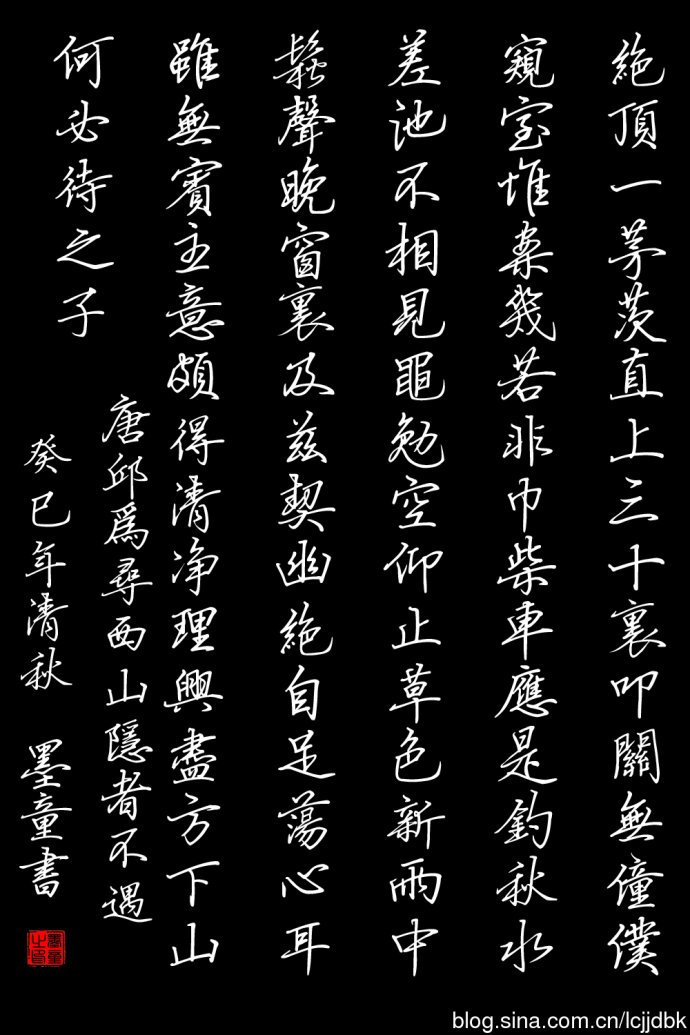 絶頂一茅茨直上三十裏叩關無僮僕
窺室惟案幾若非巾柴車應是釣秋水
差池不相見黽勉空仰止草色新雨中
鬆聲晚窗裏及兹契幽絶自足蕩心耳
雖無賓主意頗得清净理興盡方下山
何必待之子
唐邱爲尋西山隱者不遇
癸巳年清秋 墨童書
blog.sina.com.cn/lcjjdbk